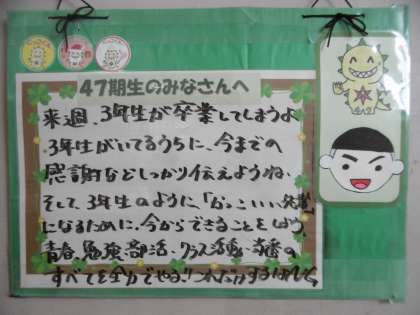 47期生のみなさんへ
来週、3年生が卒業してしまうよ
3年生がいてるうちに、今までの
感謝などしっかり伝えようね
そして、3年生のように「かっこいい先輩」
になるために、今からできることをしよう
青春、勉強、部活・クラス活動・委員の
すべてを全力でやる!!